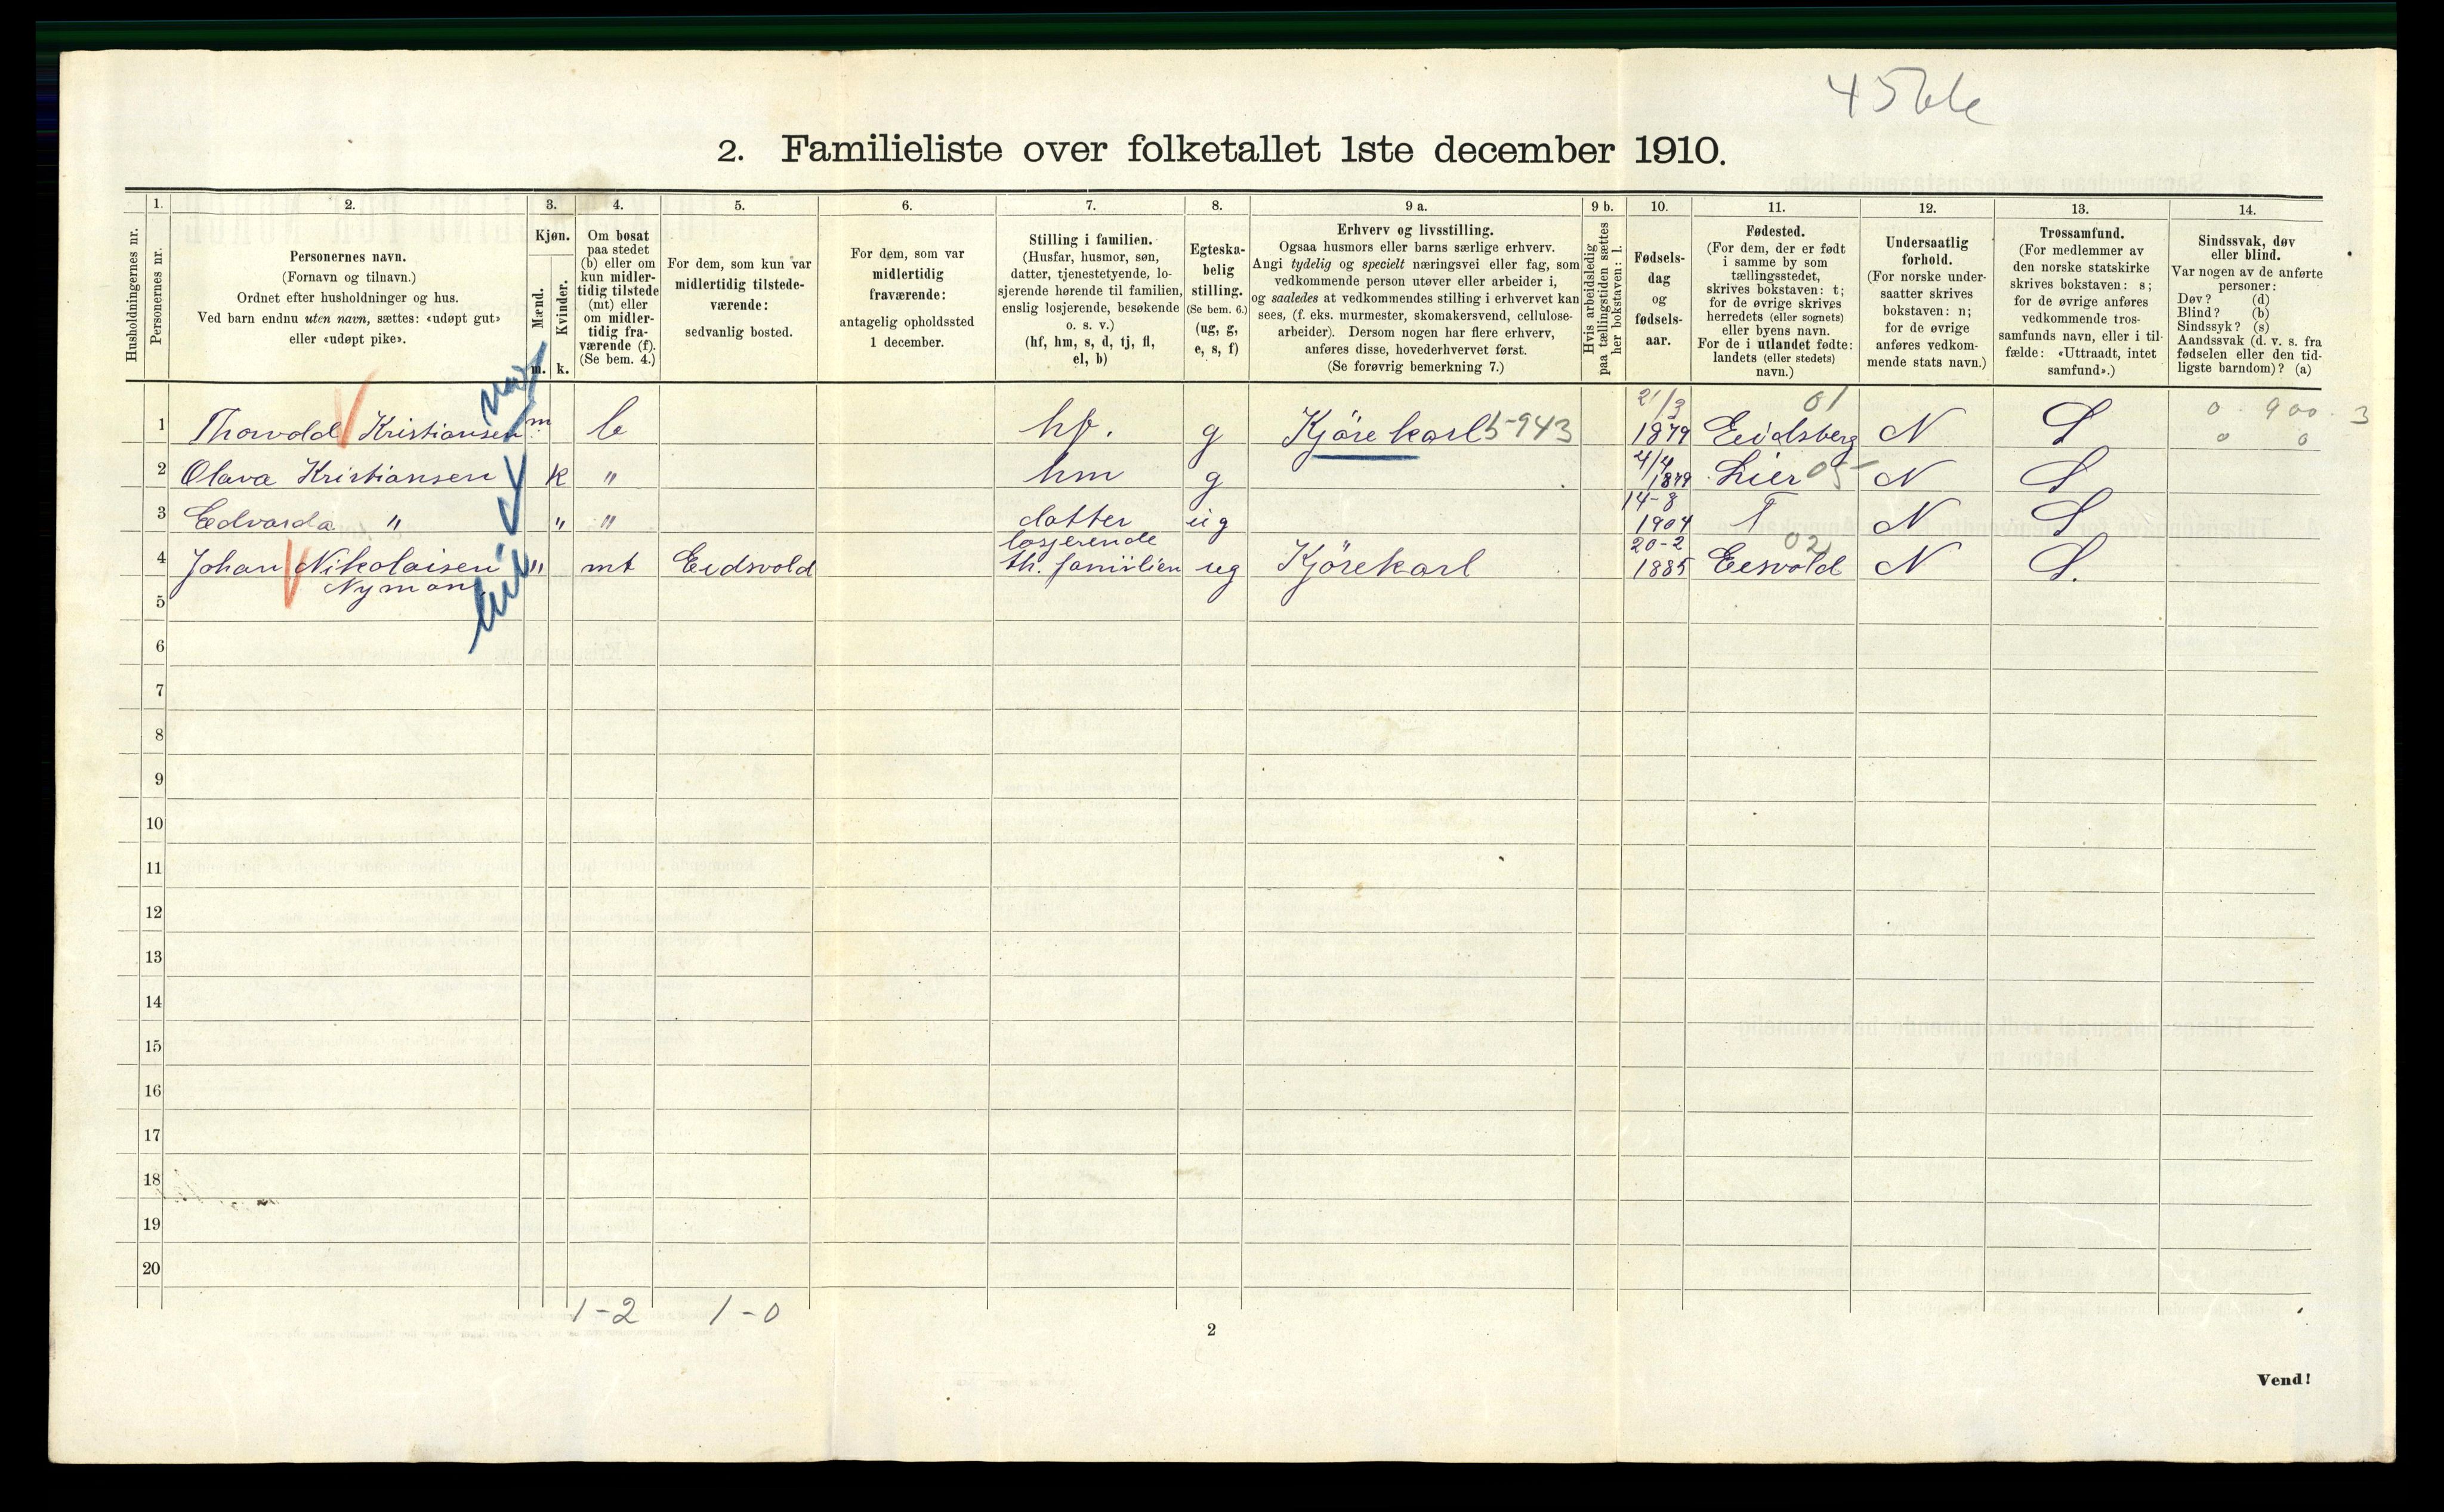 45
2. Familieliste over folketallet 1ste december 1910.
Husholdningernes nr.
1. Personernes nr.
2. Personernes navn.
(Fornavn og tilnavn.)
Ordnet efter husholdninger og hus.
Ved barn endnu uten navn, sættes: «udøpt gut»
eller «udøpt pike».
3. Kjøn.
Mænd. m.
Kvinder. k.
4. Om bosat
paa stedet
(b) eller om
kun midler-
tidig tilstede
(mt) eller
om midler-
tidig fra-
værende (f).
(Se bem. 4.)
5. For dem, som kun var
midlertidig tilstede-
værende:
sedvanlig bosted.
6. For dem, som var
midlertidig
fraværende:
antagelig opholdssted
1 december.
7. Stilling i familien.
(Husfar, husmor, søn,
datter, tjenestetyende, lo-
sjerende hørende til familien,
enslig losjerende, besøkende
o. s. v.)
(hf, hm, s, d, tj, fl,
el, b)
8. Egteska-
belig
stilling.
(Se bem. 6.)
(ug, g,
e, s, f)
9 a. Erhverv og livsstilling.
Ogsaa husmors eller barns særlige erhverv.
Angi tydelig og specielt næringsvei eller fag, som
vedkommende person utøver eller arbeider i,
og saaledes at vedkommendes stilling i erhvervet kan
sees, (f. eks. murmester, skomakersvend, cellulose-
arbeider). Dersom nogen har flere erhverv,
anføres disse, hovederhvervet først.
(Se forøvrig bemerkning 7.)
9 b. Hvis arbeidsledig
paa tællingstiden sættes
her bokstaven: l.
10. Fødsels-
dag
og
fødsels-
aar.
11. Fødested.
(For dem, der er født
i samme by som
tællingsstedet,
skrives bokstaven: t;
for de øvrige skrives
herredets (eller sognets)
eller byens navn.
For de i utlandet fødte:
landets (eller stedets)
navn.)
12. Undersaatlig
forhold.
(For norske under-
saatter skrives
bokstaven: n;
for de øvrige
anføres vedkom-
mende stats navn.)
13. Trossamfund.
(For medlemmer av
den norske statskirke
skrives bokstaven: s;
for de øvrige anføres
vedkommende tros-
samfunds navn, eller i til-
fælde: «Uttraadt, intet
samfund».)
14. Sindssvak, døv
eller blind.
Var nogen av de anførte
personer:
Døv? (d)
Blind? (b)
Sindssyk? (s)
Aandssvak (d. v. s. fra
fødselen eller den tid-
ligste barndom)? (a)
1 Thorvold Kristiansen m b hf. g Kjøre karl 5-943 21/3 1879 Eidsberg 01 N S 0 . 900 . 3
0 0
2 Olava Kristiansen k " hm g 4/4 1879 Lier 05 N S
3 Edvarda " " " datter ug 14-8 1904 T N S
4 Johan Nikolaisen " mt Eidsvold losjerende th. familien ug Kjørekarl 20-2 1885 Eesvold 02 N S.
Nyman
5
6
7
8
9
10
11
12
13
14
15
16
17
18
19
20
1-2 1-0
2
Vend!